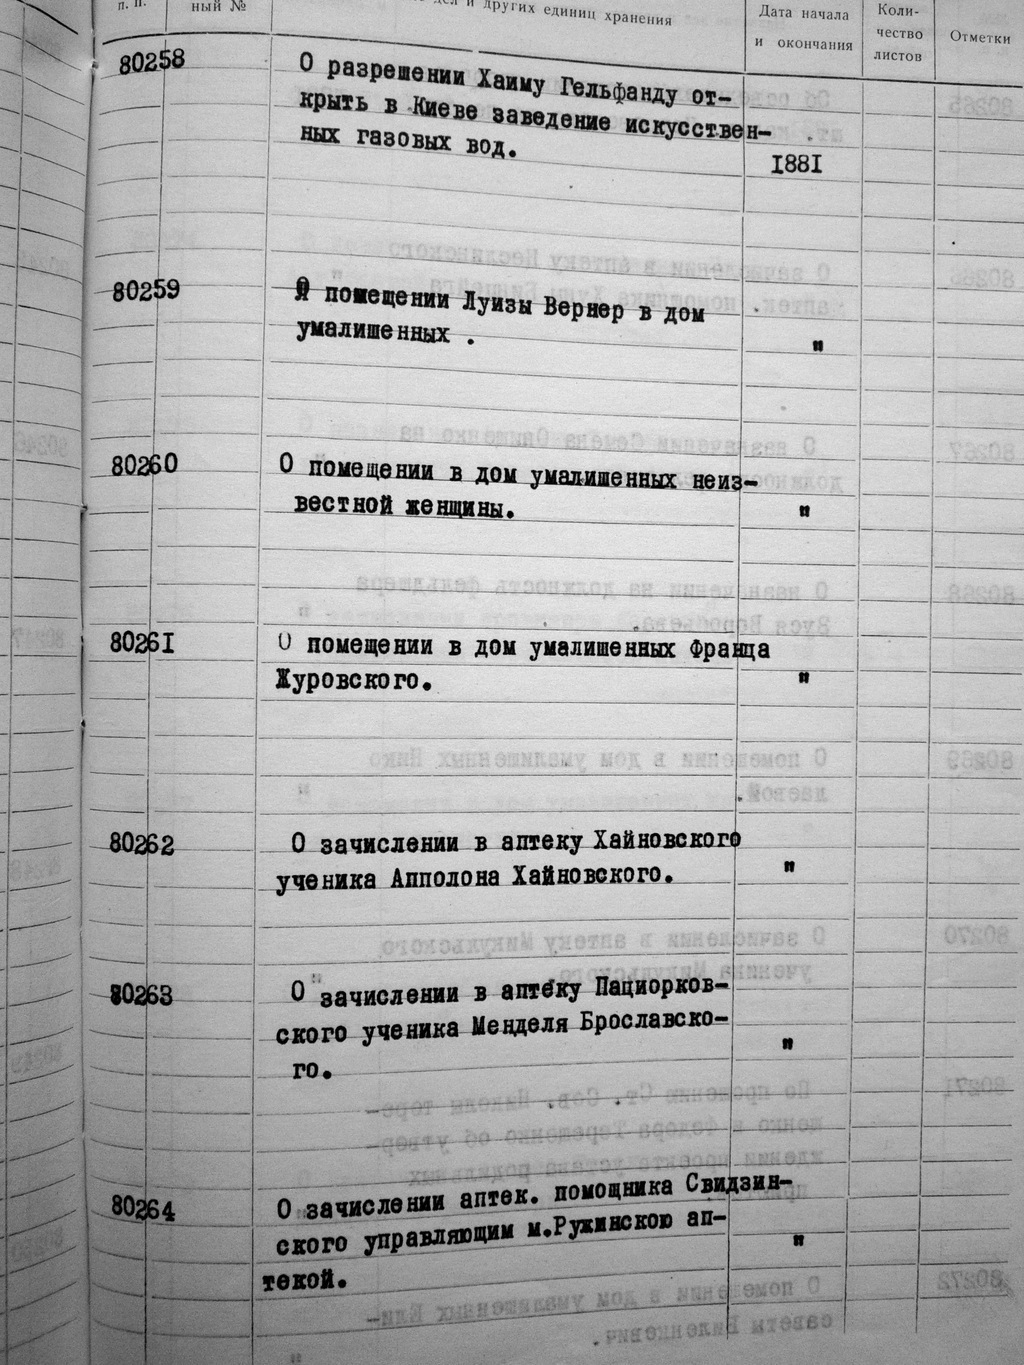 п. п.
ный №
дел и других единиц хранения
Дата начала
и окончания
Коли-
чество
листов
Отметки
80258
О разрешении Хаиму Гельфанду от-
крыть в Киеве заведение искусствен-
ных газовых вод.
1881
80259
О помещении Луизы Вернер в дом
умалишенных .
"
80260
О помещении в дом умалишенных неиз-
вестной женщины.
"
80261
О помещении в дом умалишенных Франца
Журовского.
"
80262
О зачислении в аптеку Хайновского
ученика Апполона Хайновского.
"
80263
О зачислении в аптеку Пациорков-
ского ученика Менделя Брославско-
го.
"
80264
О зачислении аптек. помощника Свидзин-
ского управляющим м.Ружинскою ап-
текой.
"